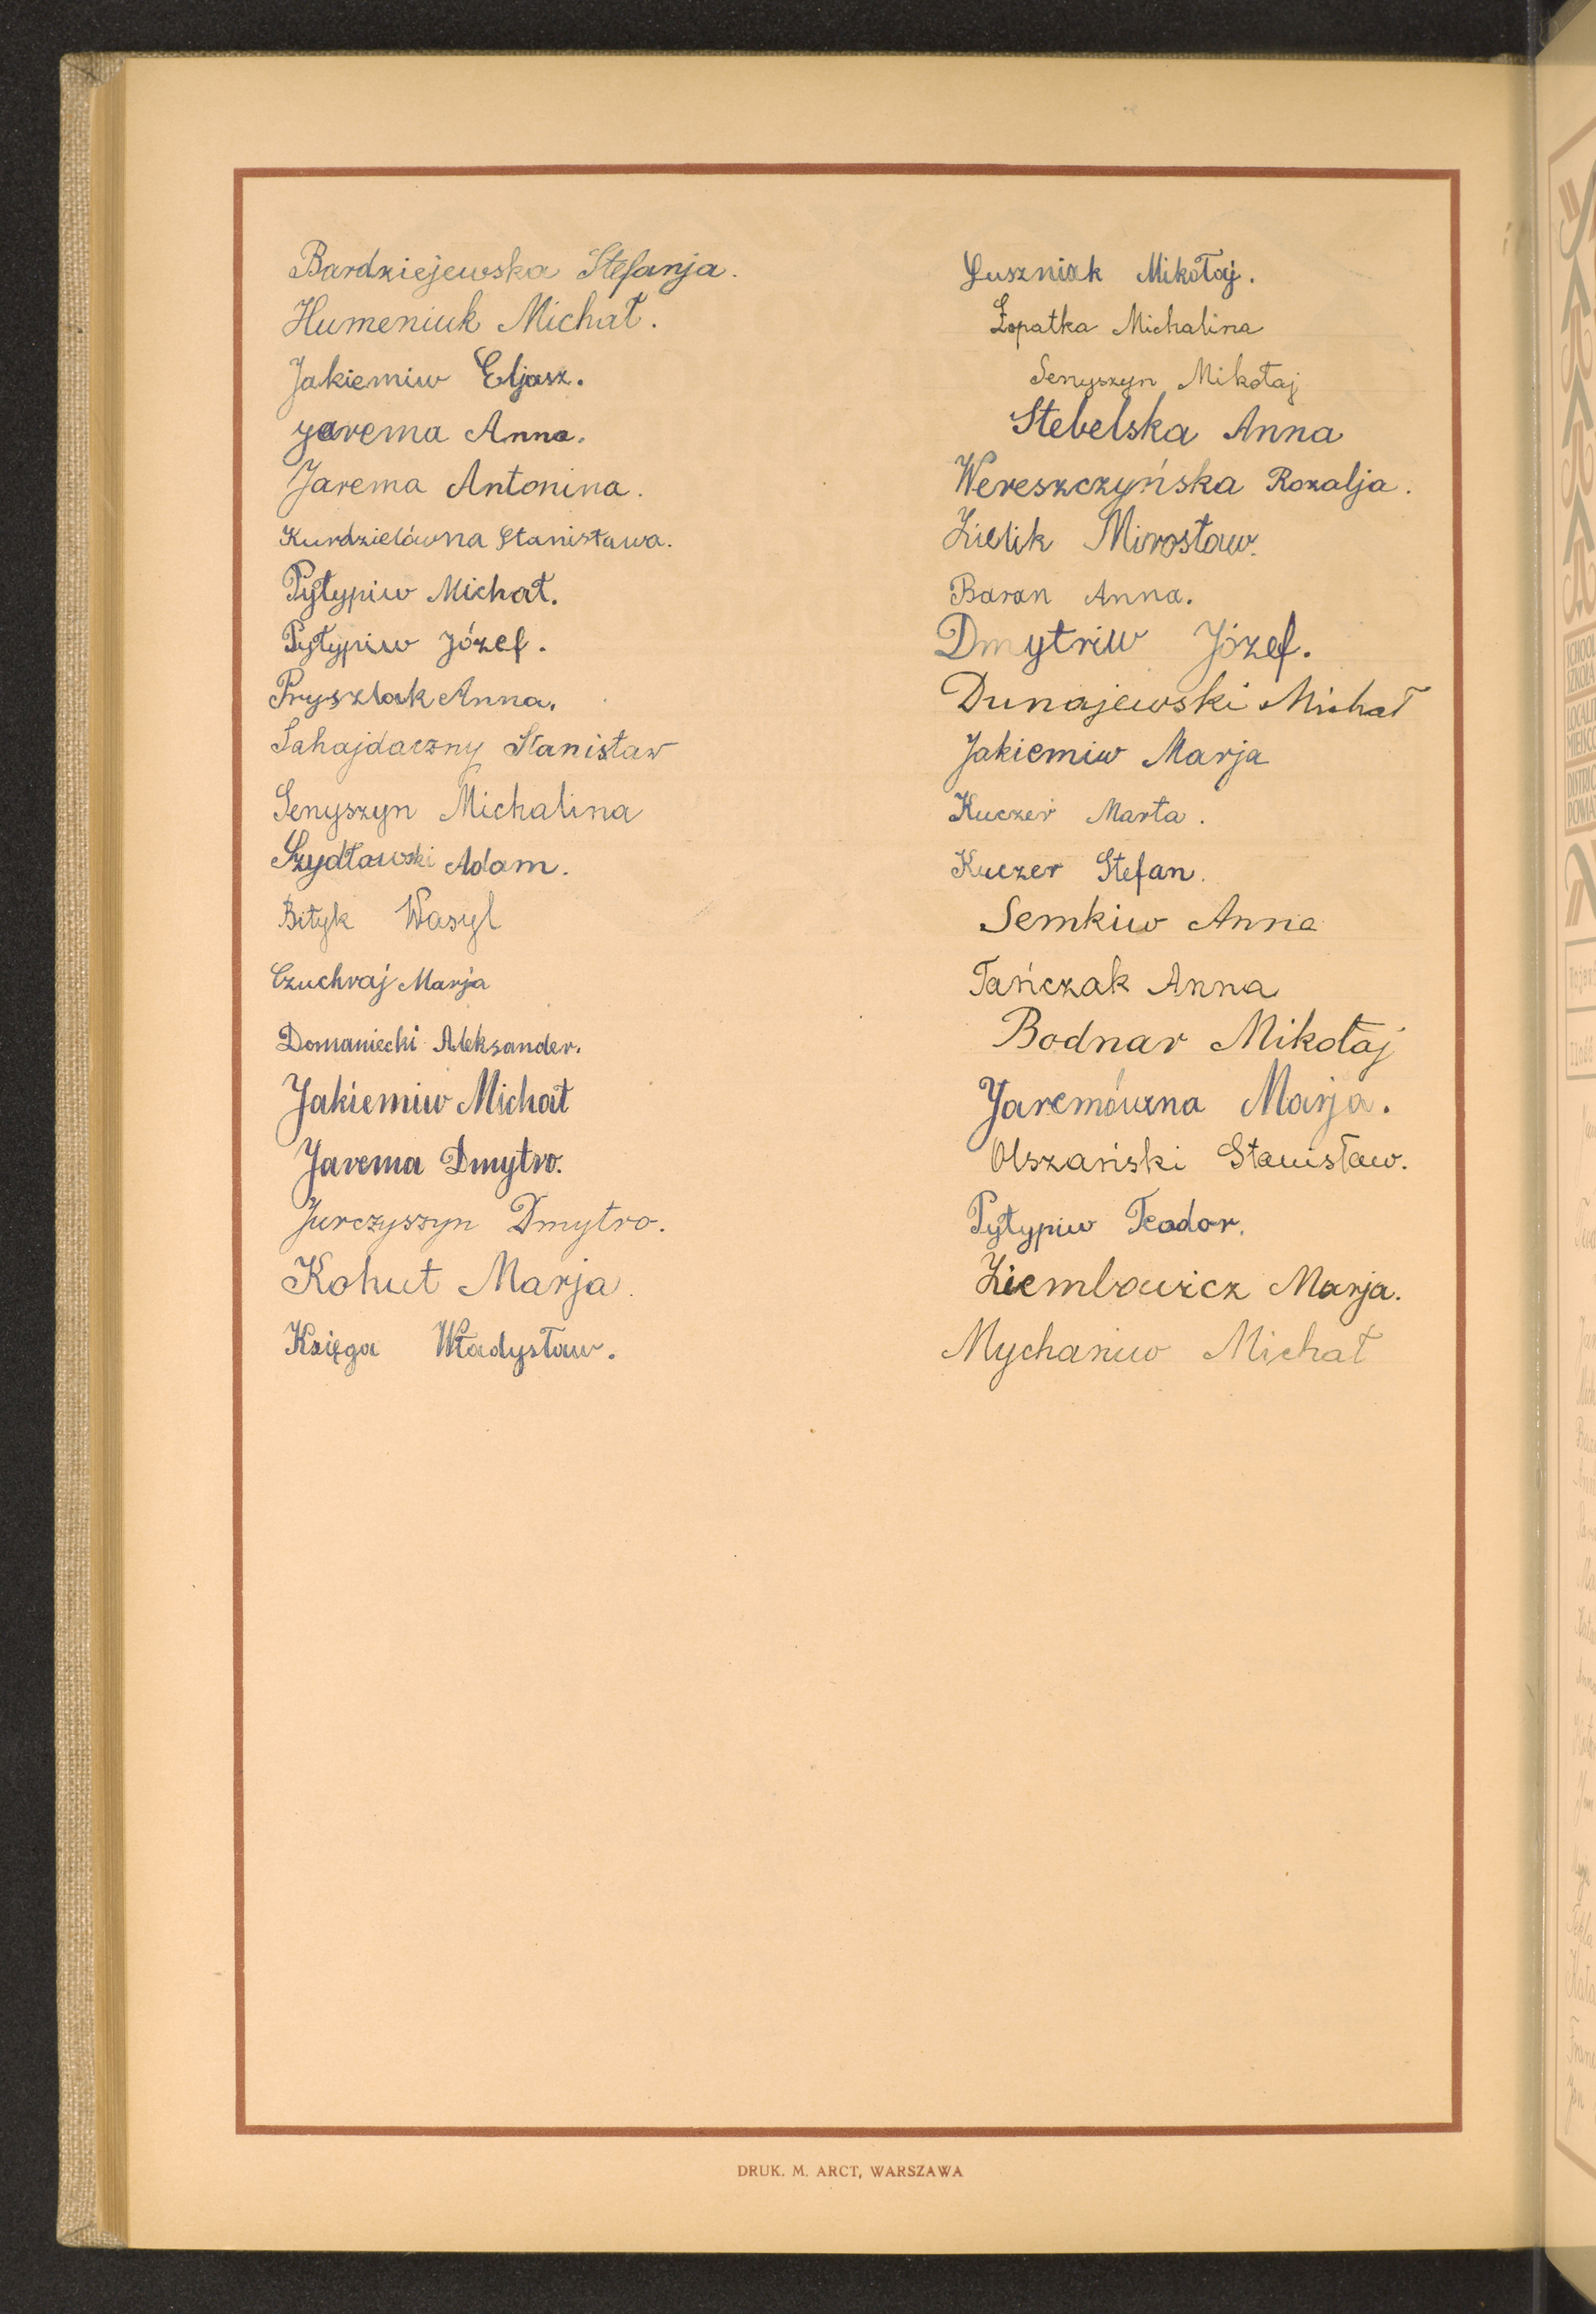 Bardziejewska Stefanja.
Humeniuk Michał.
Jakiemiw Eljasz.
Jarema Anna.
Jarema Antonina.
Kurdzielówna Stanisława.
Pyłypiw Michał.
Pyłypiw Józef.
Pryszlak Anna.
Sahajdaczny Stanisław
Senyszyn Michalina
Szydłowski Adam.
Biłyk Wasyl
Czuchraj Marja
Domaniecki Aleksander.
Jakiemiw Michał
Jarema Dmytro.
Jurczyszyn Dmytro.
Kohut Marja.
Księga Władysław.
Łuszniak Mikołaj.
Łopatka Michalina
Senyszyn Mikołaj
Stebelska Anna
Wereszczyńska Rozalja.
Zielik Mirosław.
Baran Anna.
Dmytriw Józef.
Dunajewski Michał
Jakiemiw Marja
Kuczer Marta.
Kuczer Stefan.
Semkiw Anna
Tańczak Anna
Bodnar Mikołaj
Jaremówna Marja.
Olszański Stanisław.
Pyłypiw Teodor.
Ziembowicz Marja.
Mychaniw Michał
DRUK. M. ARCT, WARSZAWA